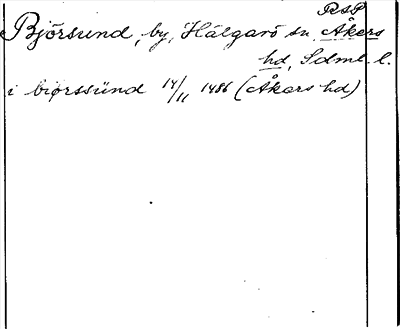 RAP
Björsund, by, Hälgarö sn, Åkers
hd, Sdml. l.
i biørssünd 14/11 1486 (Åkers hd)